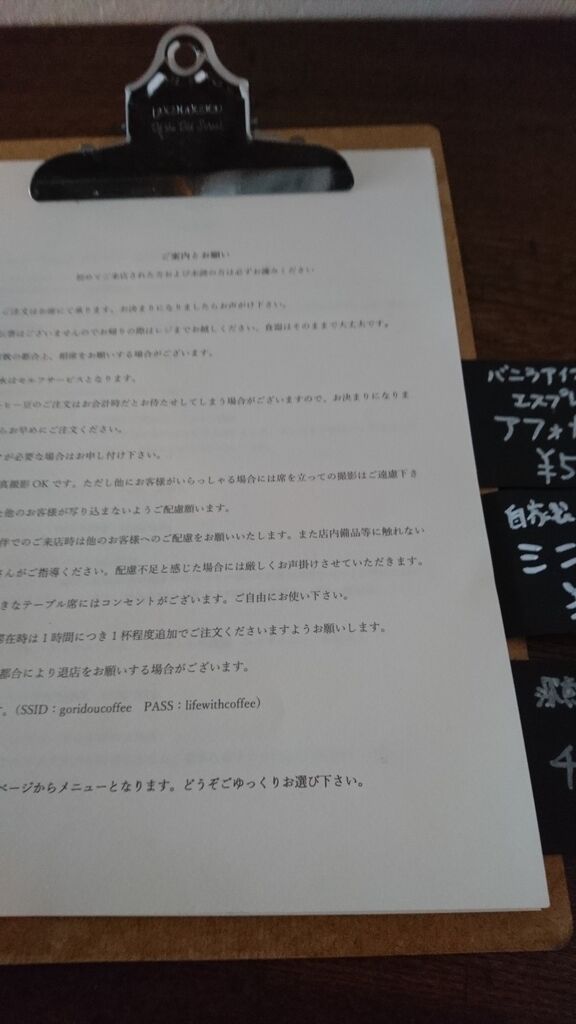 ご案内とお願い
初めてご来店された方および未読の方は必ずお読みください
ご注文はお席にて承ります。お決まりになりましたらお声がけ下さい。
伝票はございませんのでお帰りの際はレジまでお越しください。食器はそのままで大丈夫です。
都合上、相席をお願いする場合がございます。
水はセルフサービスとなります。
ーヒー豆のご注文はお会計時だとお待たせしてしまう場合がございますので、お決まりになりま
らお早めにご注文ください。
が必要な場合はお申し付け下さい。
真撮影 OK です。ただし他にお客様がいらっしゃる場合には席を立っての撮影はご遠慮下さ
た他のお客様が写り込まないようご配慮願います。
伴でのご来店時は他のお客様へのご配慮をお願いいたします。また店内備品等に触れない
さんがご指導ください。配慮不足と感じた場合には厳しくお声掛けさせていただきます。
きなテーブル席にはコンセントがございます。ご自由にお使い下さい。
滞在時は 1 時間につき 1 杯程度追加でご注文くださいますようお願いします。
都合により退店をお願いする場合がございます。
す。（SSID：goridoucoffee　PASS：lifewithcoffee）
ページからメニューとなります。どうぞごゆっくりお選び下さい。
バニラアイ
エスプレ
アフォ
¥5
自家製
ミニ
4